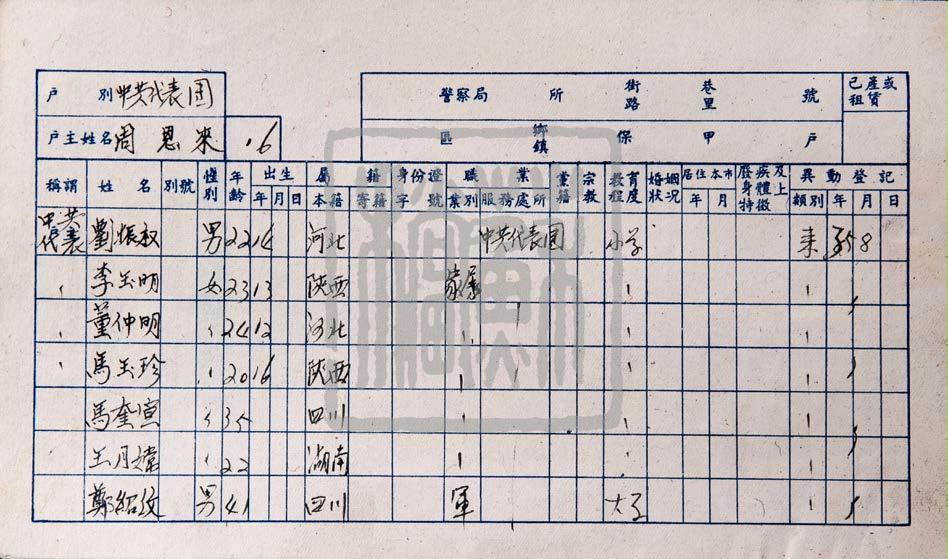 戶 別 中共代表團
戶主姓名 周恩來 6
警察局 所 街路 巷里 號
區 鄉鎮 保 甲 戶
已產或租賃
稱謂 姓名 別號 性別 年齡 出生 年 月 日 屬 籍 本籍 寄籍 身份證 字號 職業 業別 服務處所 黨籍 宗教 教育程度 婚姻狀況 居住本市 年 月 廢疾及身體上特徵 異動登記 類別 年 月 日
中共代表 劉振叔 男 22 14 河北 中共代表團 小学 来 35 8
李玉明 女 23 13 陝西 家屬
董仲明 24 12 河北
馬玉珍 20 16 陝西
馬奎宣 35 四川
王月 22 湖南
鄭紹文 男 41 四川 軍 大学